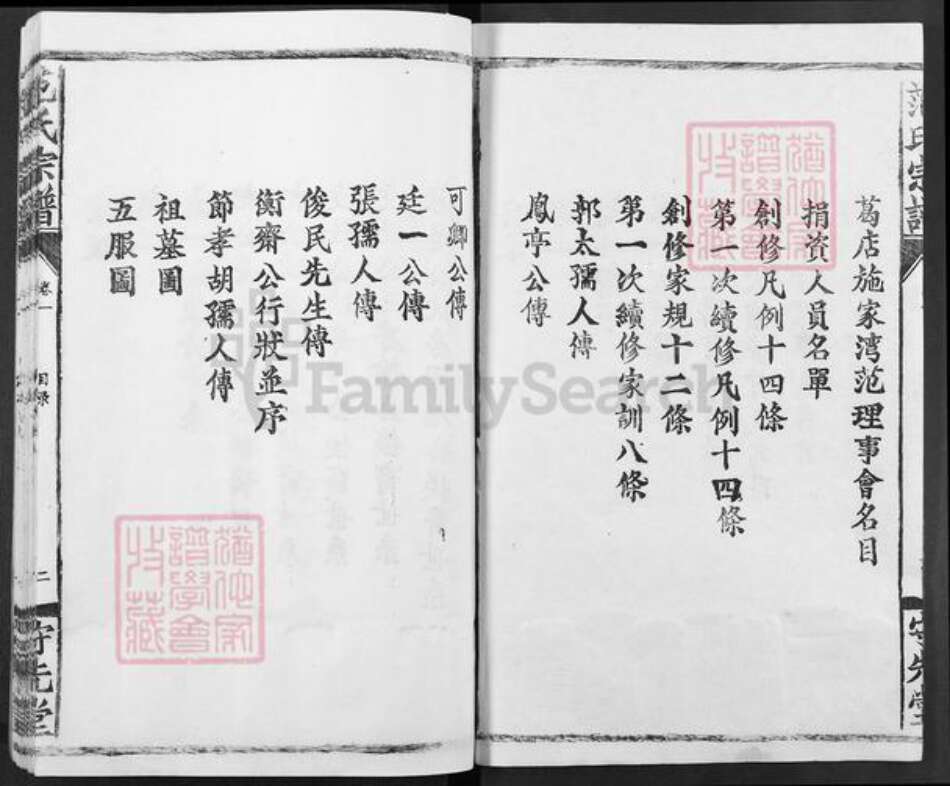 葛店施家湾范理事會名目
捐資人員名單
創修凡例十四條
第一次續修凡例十四條
創修家規十二條
第一次續修家訓八條
郭太孺人傳
鳳亭公傳
可卿公傳
廷一公傳
張孺人傳
俊民先生傳
衡齋公行狀並序
節孝胡孺人傳
祖墓圖
五服圖
范氏宗譜
卷一
目錄
二
守先堂
范氏宗譜
守先堂
猶他家譜學會收藏
猶他家譜學會收藏
FamilySearch